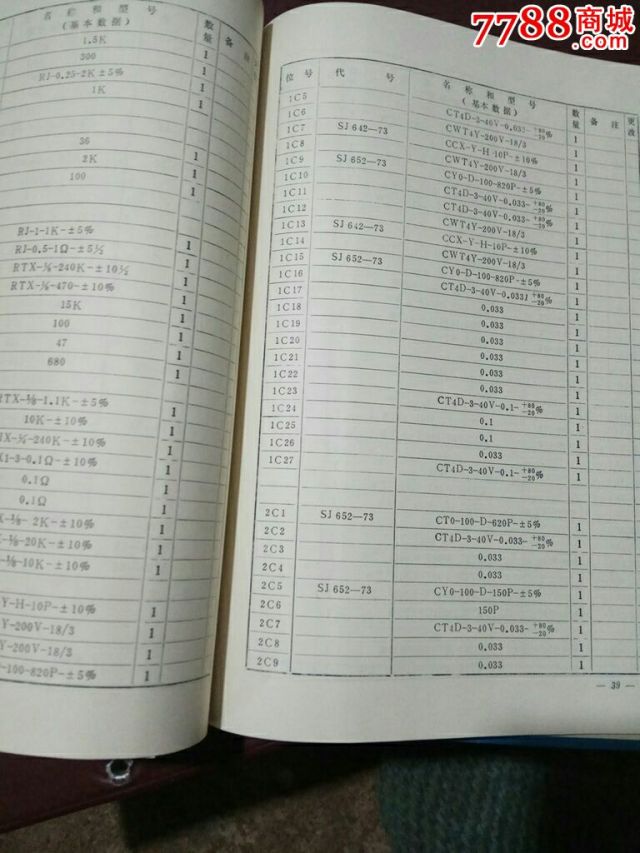 7788商城
.com
名 称 和 型 号
(基本数据)
数量
备
1.5K 1
300 1
RJ-0.25-2K-±5% 1
1K 1
36 1
2K 1
100 1
RJ-1-1K-±5% 1
RJ-0.5-1Ω-±5% 1
RTX-⅛-240K-±10% 1
RTX-⅛-470-±10% 1
15K 1
100 1
47 1
680 1
RTX-⅛-1.1K-±5% 1
10K-±10% 1
-240K-±10% 1
1-3-0.1Ω-±10% 1
0.1Ω 1
0.1Ω 1
-⅛-2K-±10% 1
-⅛-20K-±10% 1
-⅛-10K-±10% 1
Y-H-10P-±10% 1
Y-200V-18/3 1
Y-200V-18/3 1
-100-820P-±5% 1
位 号 代 号 名 称 和 型 号 (基本数据) 数量 备 注 更改
1C5 CT4D-3-40V-0.033-+80-20% 1
1C6 CWT4Y-200V-18/3 1
1C7 SJ 642—73 CCX-Y-H-10P-±10% 1
1C8 CWT4Y-200V-18/3 1
1C9 SJ 652—73 CY0-D-100-820P-±5% 1
1C10 CT4D-3-40V-0.033-+80-20% 1
1C11 CT4D-3-40V-0.033-+80-20% 1
1C12 CWT4Y-200V-18/3 1
1C13 SJ 642—73 CCX-Y-H-10P-±10% 1
1C14 CWT4Y-200V-18/3 1
1C15 SJ 652—73 CY0-D-100-820P-±5% 1
1C16 CT4D-3-40V-0.033J +80-20% 1
1C17 0.033 1
1C18 0.033 1
1C19 0.033 1
1C20 0.033 1
1C21 0.033 1
1C22 0.033 1
1C23 CT4D-3-40V-0.1-+80-20% 1
1C24 0.1 1
1C25 0.1 1
1C26 0.033 1
1C27 CT4D-3-40V-0.1-+80-20% 1
2C1 SJ 652—73 CT0-100-D-620P-±5% 1
2C2 CT4D-3-40V-0.033-+80-20% 1
2C3 0.033 1
2C4 0.033 1
2C5 SJ 652—73 CY0-100-D-150P-±5% 1
2C6 150P 1
2C7 CT4D-3-40V-0.033-+80-20% 1
2C8 0.033 1
2C9 0.033 1
— 39 —